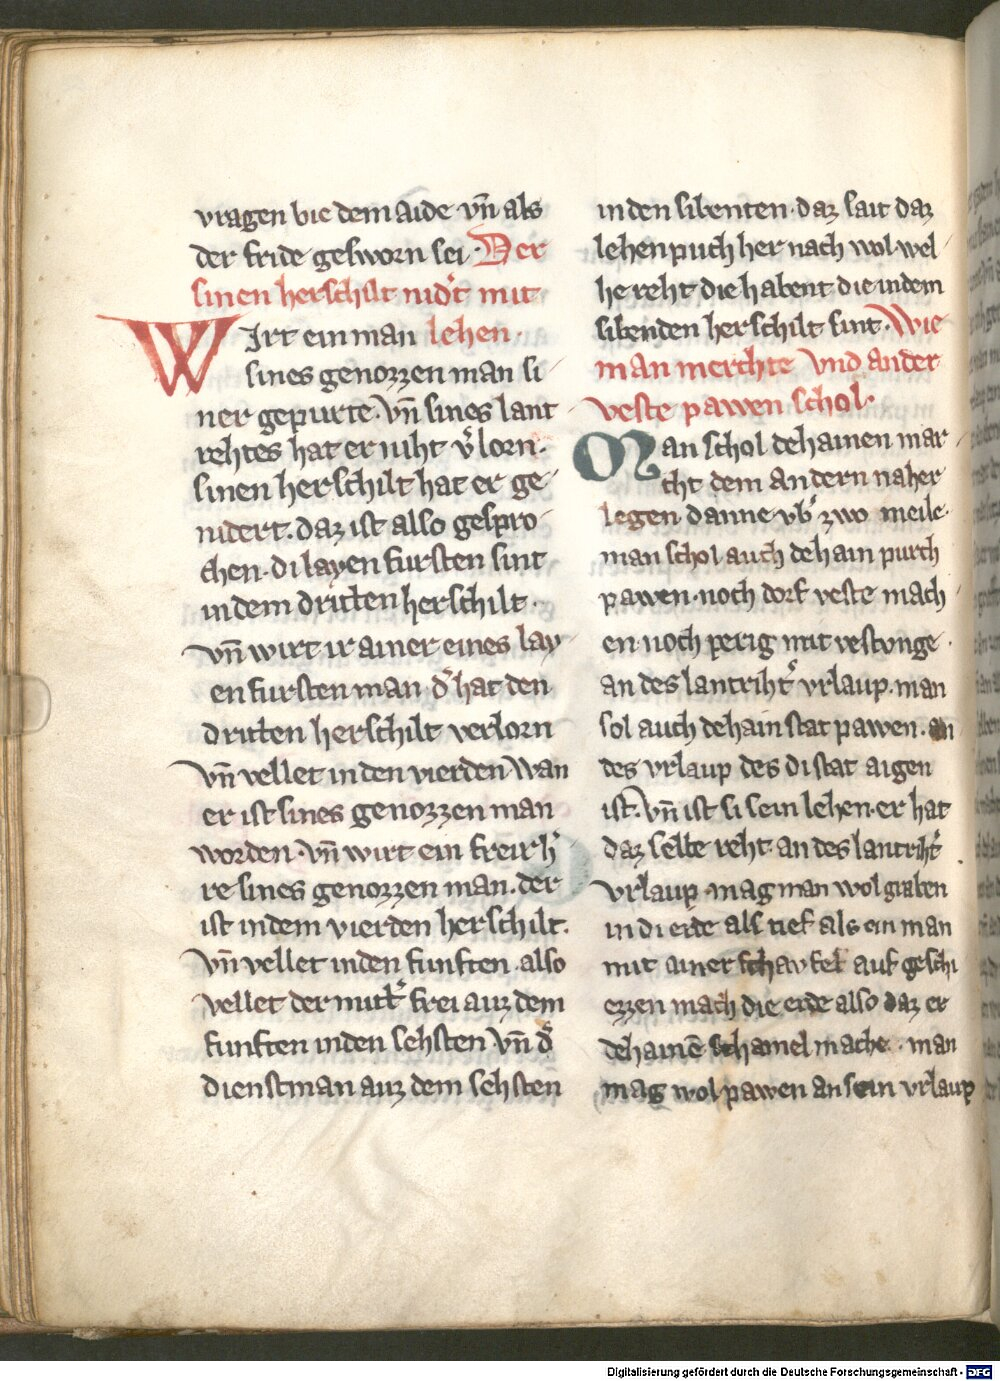 vragen bie dem aide vn̄ als
der fride gesworn sei · Der
sinen herschilt nid͛t mit
WIrt ein man lehen ·
sines genozzen man si
ner gepurte · vn̄ sines lant
rehtes hat er niht v͛lorn ·
sinen herschilt hat er ge
nidert . daz ist also gespro
chen · di layen fursten sint
in dem dritten herschilt ·
vn̄ wirt ir ainer eines lay
en fursten man · d͛ hat den
dritten herschilt verlorn
vn̄ vellet in den vierden · wan
er ist sines genozzen man
worden · vn̄ wirt ein freir h͛
re sines genozzen man . der
ist in dem vierden herschilt .
vn̄ vellet in den funften · also
vellet der mitt͛ frei auz dem
funften in den sehsten vn̄ d͛
dienstman auz dem sehsten
in den sibenten · daz sait daz
lehenpuch her nach wol · wel
he reht die habent die in dem
sibenden herschilt sint · Wie
man merchte vnd ander
veste pawen schol ·
Man schol dehainen mar
cht dem andern naher
legen danne vb͛ zwo meile ·
man schol auch dehain purch
pawen · noch dorf veste mach
en · noch perig mit vestvnge ·
an des lantriht͛ vrlaup . man
sol auch dehain stat pawen . an
des vrlaup des di stat aigen
ist . vn̄ ist si sein lehen · er hat
daz selbe reht · an des lantriht͛
vrlaup · mag man wol graben
in di erde als tief als ein man
mit ainer schavfel auf geschi
ezzen mach die erde also daz er
dehainē schamel mache · man
mag wol pawen an sein vrlaup
Digitalisierung gefördert durch die Deutsche Forschungsgemeinschaft - DFG